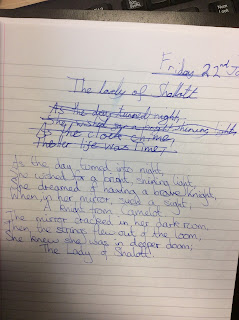 Friday 22nd Ja
The Lady of Shalott
As the day turned night,
She wished for a bright shining light,
As the clock chime,
her life was Time!
As the day turned into night,
She wished for a bright shining light,
She dreamed of having a brave knight,
When, in her mirror, such a sight,
A knight from Camelot.
The mirror cracked in her dark room,
Then the strings flew out of the loom,
She knew she was in deeper doom;
The Lady of Shalott.